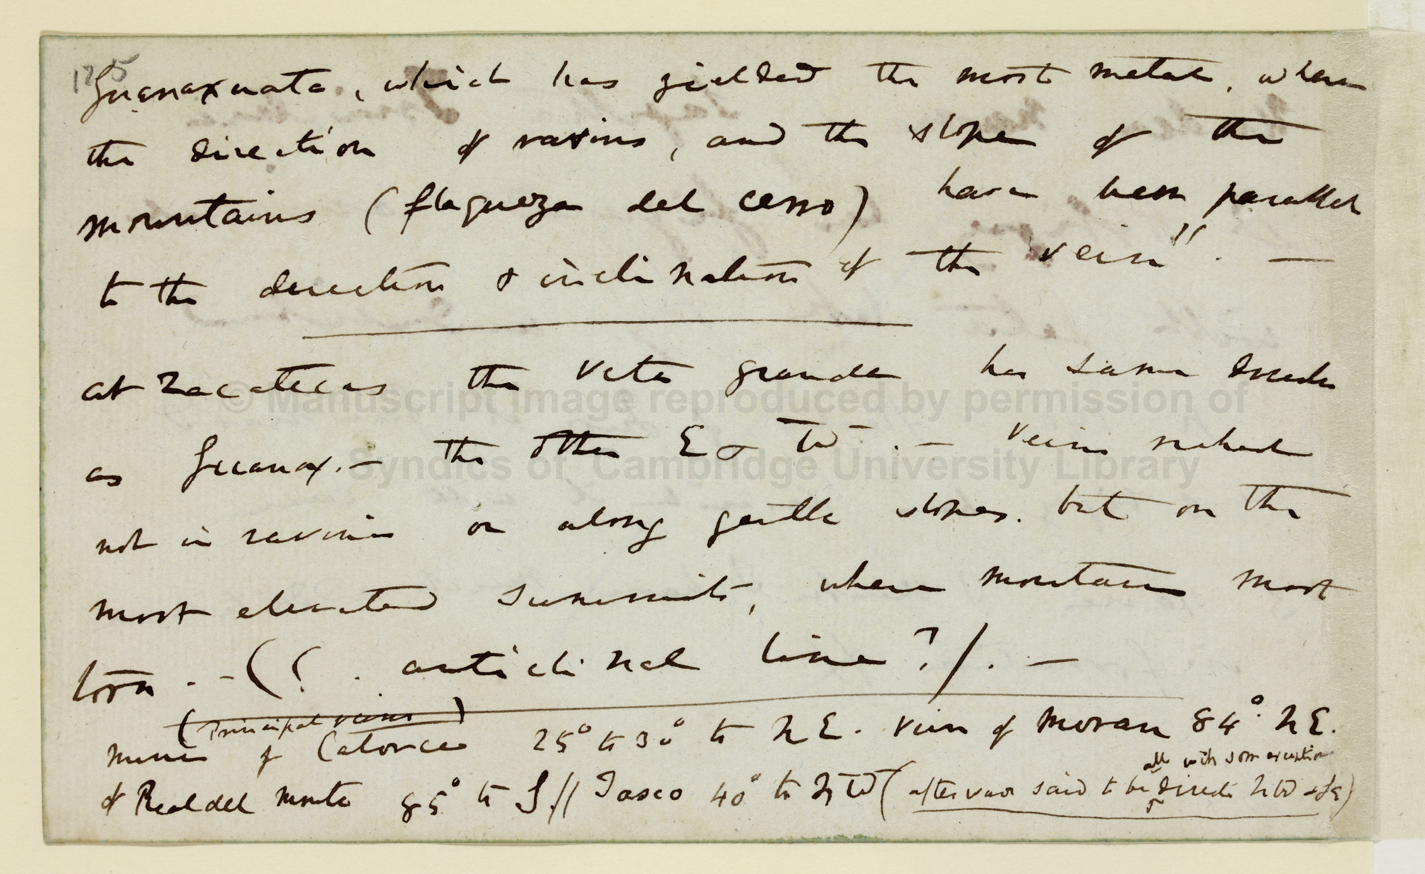 125
Guanaxuato, which has yielded the most metal, where
the direction of ravins, and the slope of the
mountains (flaqueza del cerro) have been parallel
to the direction & inclination of the vein". —
at Zacatecas the Veta grande has same direction
as Guanax. — the other E & W. — Veins richest
not in ravines or along gentle slopes. but on the
most elevated summits, where mountains most
torn. — (? anticlinal line?). —
(Principal veins)
mines of Catorce 25° to 30° to N E. Vein of Moran 84° N E.
all with some exception
of Real del Monte 85° to S. // Tasco 40° to N W (afterwards said to be directed N W & SE)
© Manuscript image reproduced by permission of
Syndics of Cambridge University Library